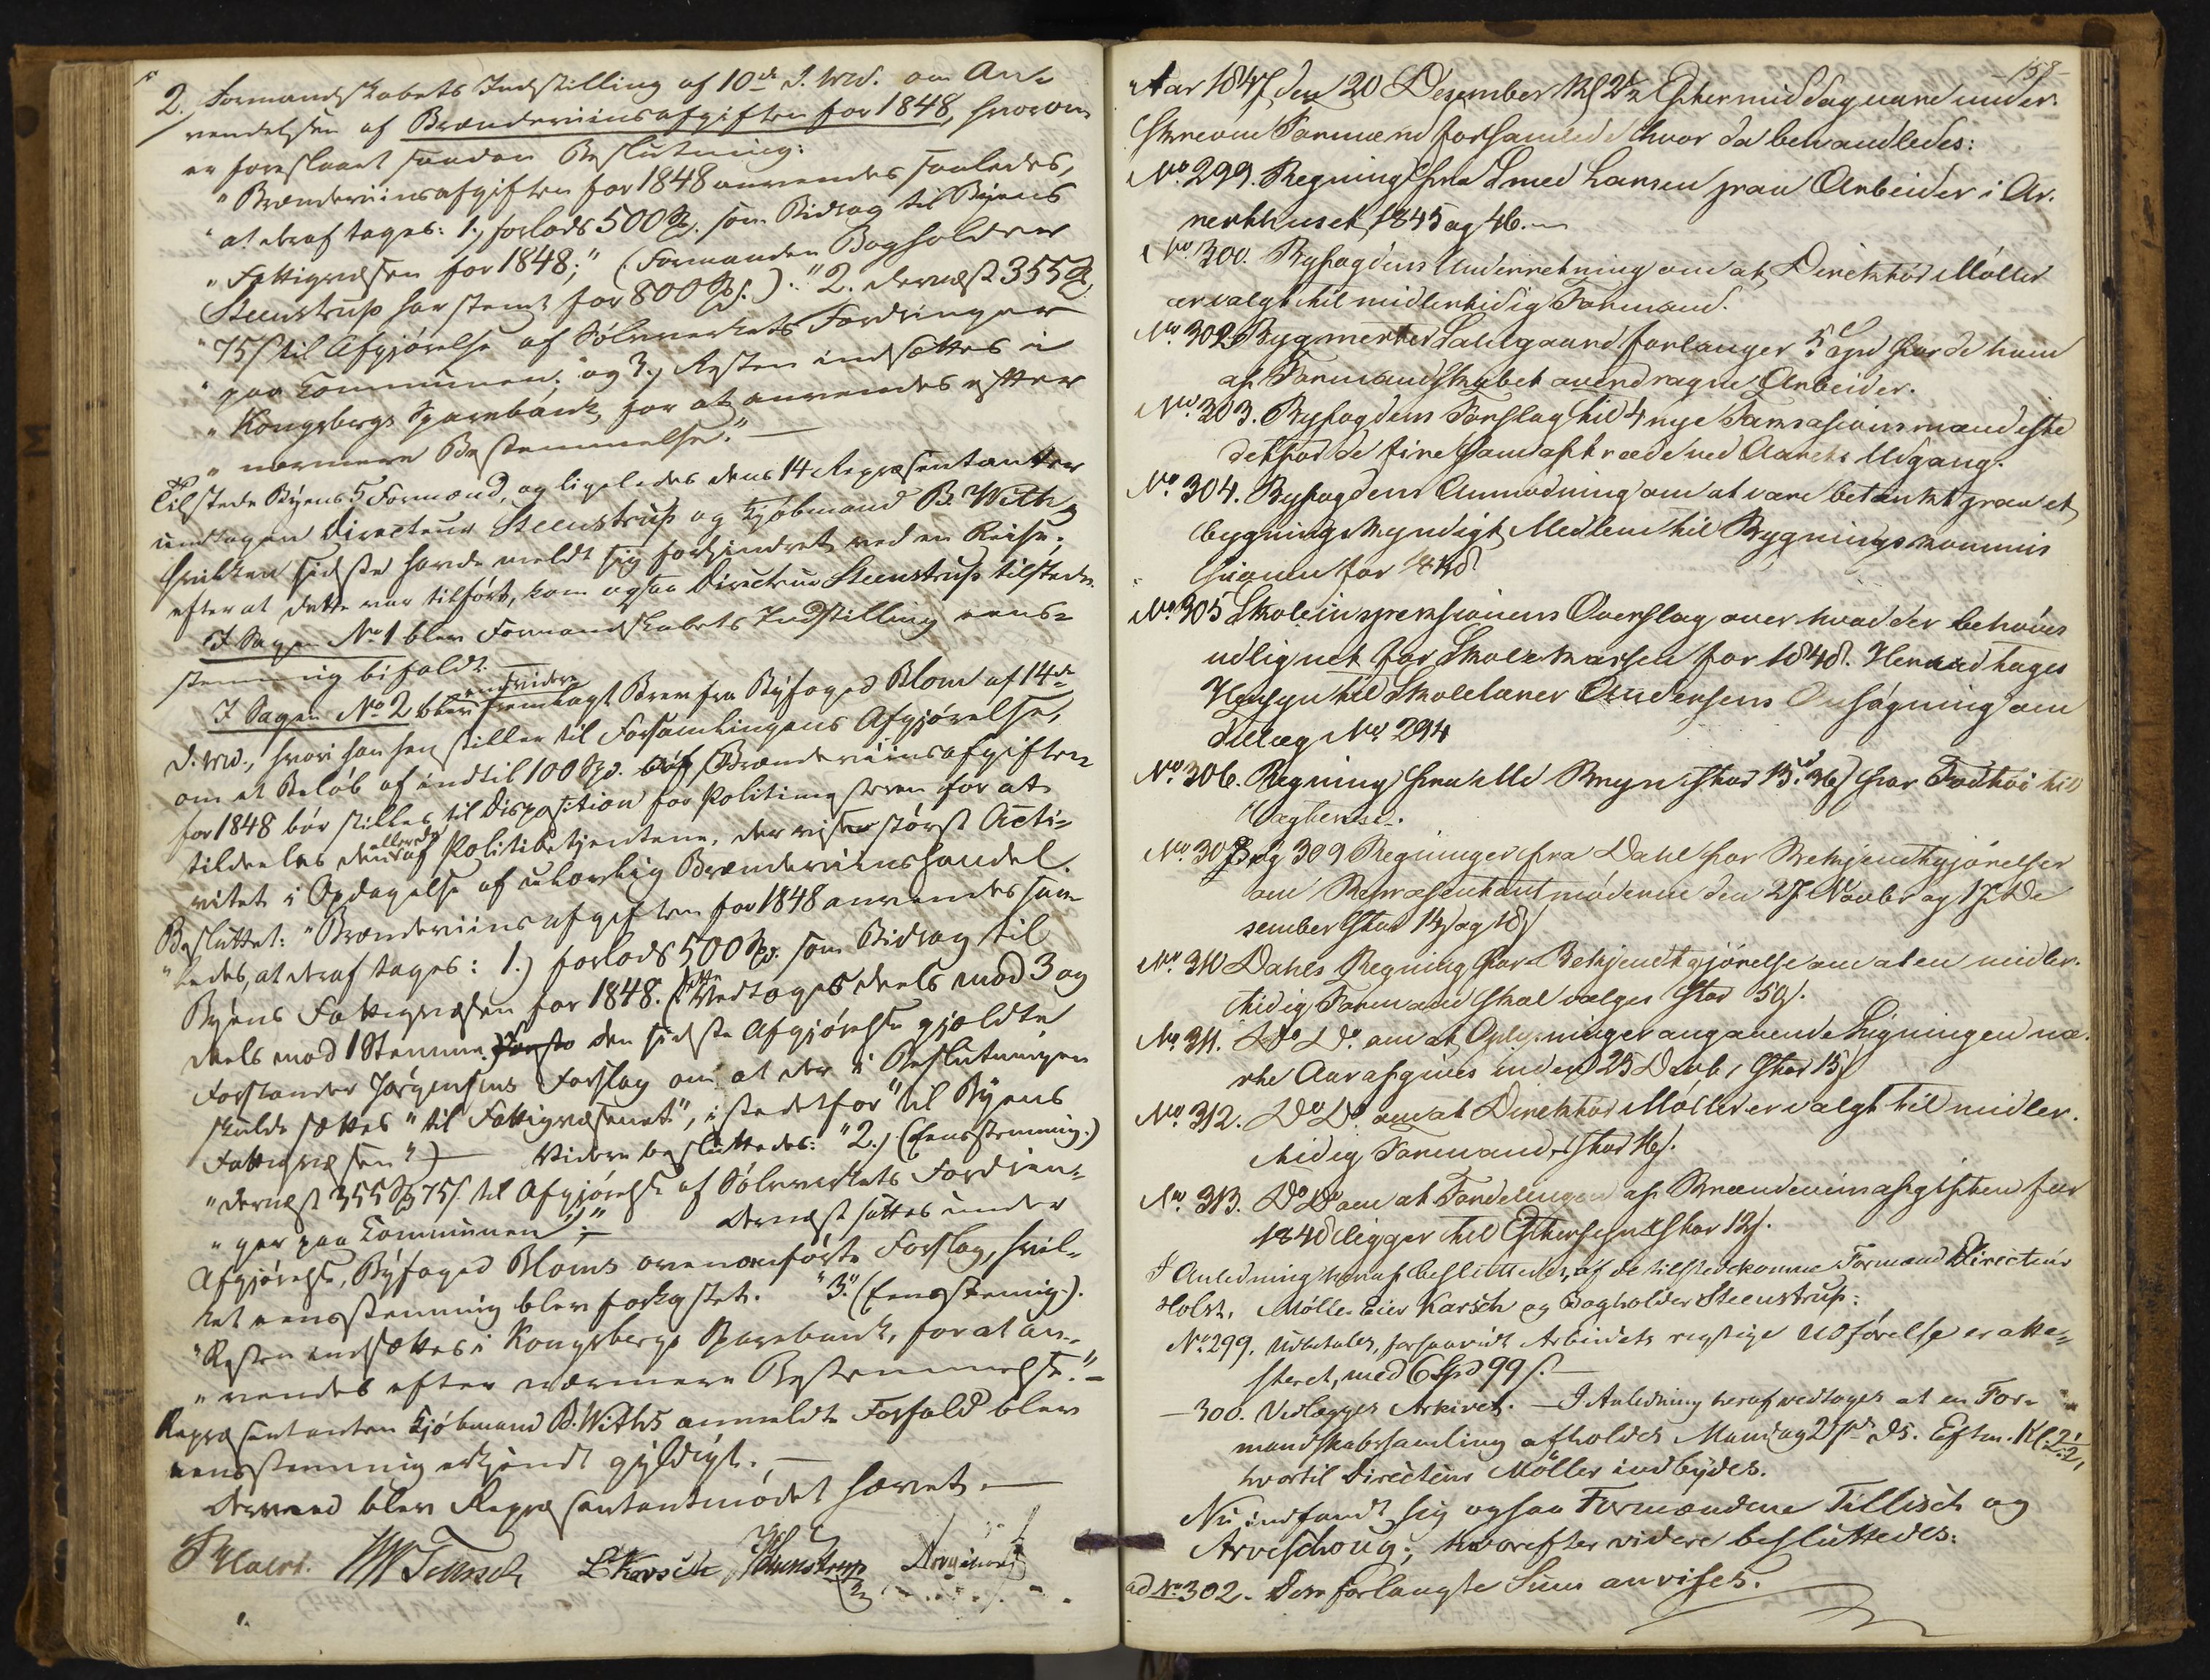 2. Formandskabets Indstilling af 10de d. Md. om An-
vendelsen af Brændeviinsafgiften for 1848, hvorom
er foreslaaet saadan Beslutning:
"Brændeviinsafgiften for 1848 anvendes saaledes,
"at deraf tages: 1., forlods 500 Spd. som Bidrag til Byens
"Fattigvæsen for 1848;" (Formanden Bogholder
Steenstrup har stemt for 800 Spd.). "2. dernæst 355 Spd
"75 s til Afgjørelse af Sølvverkets Fordringer
"paa Communen; og 3., Resten indsættes i
"Kongsbergs Sparebank, for at anvendes efter
"nærmere Bestemmelse." —
Tilstede Byens 5 Formænd, og ligeledes dens 14 Repræsentanter
undtagen Directeur Steenstrup og Kjøbmand B. With,
hvilken sidste havde meldt sig forhindret ved en Reise;
efterat dette var tilført, kom ogsaa Directeur Steenstrup tilstede.
I Sagen No 1 blev Formandskabets Indstilling eens-
stemmig bifaldt. —
I Sagen No 2 blev endvidere fremlagt Brev fra Byfoged Blom af 14de
d. Md., hvori han henstiller til Forsamlingens Afgjørelse,
om et Beløb af indtil 100 Spd. af Brændeviinsafgiften
for 1848 bør stilles til Disposition for Politimesteren for at
tildeles Politibetjentene, der viser størst Acti-
vitet i Opdagelse af ulovlig Brændeviinshandel.
Besluttet: "Brændeviinsafgiften for 1848 anvendes saa-
"ledes, at deraf tages: 1.) forlods 500 Spd. som Bidrag til
Byens Fattigvæsen for 1848. (Dette Vedtoges deels mod 3 og
deels mod 1 Stemme. den sidste Afgjørelse gjældte
Forstander Jørgensens Forslag om at der i Beslutningen
skulde sættes "til Fattigvæsenet", istedetfor "til Byens
Fattigvæsen") — Videre besluttedes: "2.) (Eensstemmig.)
"dernæst 355 Spd 75 s. til Afgjørelse af Sølvverkets Fordrin-
"ger paa Communen;" — dernæst sattes under
Afgjørelse, Byfoged Bloms ovenanførte Forslag, hvil-
ket eensstemmig blev forkastet. "3." (Eensstemmig.).
"Resten indsættes i Kongsbergs Sparebank, for at an-
"vendes efter nærmere Bestemmelse." —
Repræsentanten Kjøbmand B. Withs anmeldte Forfald blev
eensstemmig erkjendt gyldigt. —
Dermed blev Repræsentantmødet hævet. —
P Holst. Tillisch L Karsch Steenstrup Arveschoug
-158-
Aar 1847, den 20 Desember Kl 2½ Eftermiddag vare under-
skrevne Formænd forsamlede hvor da behandledes:
No. 299. Regning fra Smed Larsen paa Arbeider i Ar-
resthuset 1845 og 46.
No. 300. Byfogdens Underretning om at Direktør Møller
er valgt til midlertidig Formand.
No. 302. Bygmester Dalsgaard forlanger 5 Spd for de ham
af Formandskabet overdragne Arbeider.
No. 303. Byfogdens Forslag til 4 nye Taxasionsmænd iste
detfor de fire fratrædende ved Aarets Udgang.
No. 304. Byfogdens Anmodning om at være betænkt paa et
bygningskyndigt Medlem til Bygningskommis
sionen for 1848
No. 305 Skoleinspeksionens Overslag over hvad der behøves
udlignet for Skolekassen for 1848. Herved tages
Hensyn til Skolelærer Andersens Ansøgning om
Tillæg No 294
No. 306. Regning fra Elle Bryn stor 15. 36 s for Fodtøi til
Vægterne.
No. 308 og 309 Regninger fra Dahl for Bekjendtgjørelser
om Repræsentantmøderne den 27. Novbr og 17 De
sember stor 14 s og 18 s
No. 310 Dahls Regning for Bekjendtgjørelse om at en midler-
tidig Formand skal vælges stor 50 s.
No. 311. Do Do. om at Oplysninger angaaende Ligningen næ-
ste Aar afgives inden 25 Decbr, stor 15 s
No. 312. Do Do om at Direktør Møller er valgt til midler-
tidig Formand, stor 16 s.
No. 313. Do Do om at Fordelingen af Brændeviinsafgiften for
1848 ligger til Eftersyn stor 12 s.
I Anledning heraf besluttedes, af de tilstedekomne Formænd Directeur
Holst, Mølleeier Karsch og Bogholder Steenstrup:
No 299. Udbetales, forsaavidt Arbeidets rigtige Udførelse er atte-
steret, med 6 Spd 99 s. —
— 300. Vedlægges Arkivet. — I Anledning heraf vedtages at en For-
mandskabssamling afholdes Mandag 27de ds. Efterm. Kl 2½,
hvortil Directeur Møller indbydes.
Nu indfandt sig ogsaa Formændene Tillisch og
Arveschoug; hvorefter videre besluttedes:
ad No 302. Den forlangte Sum anvises.